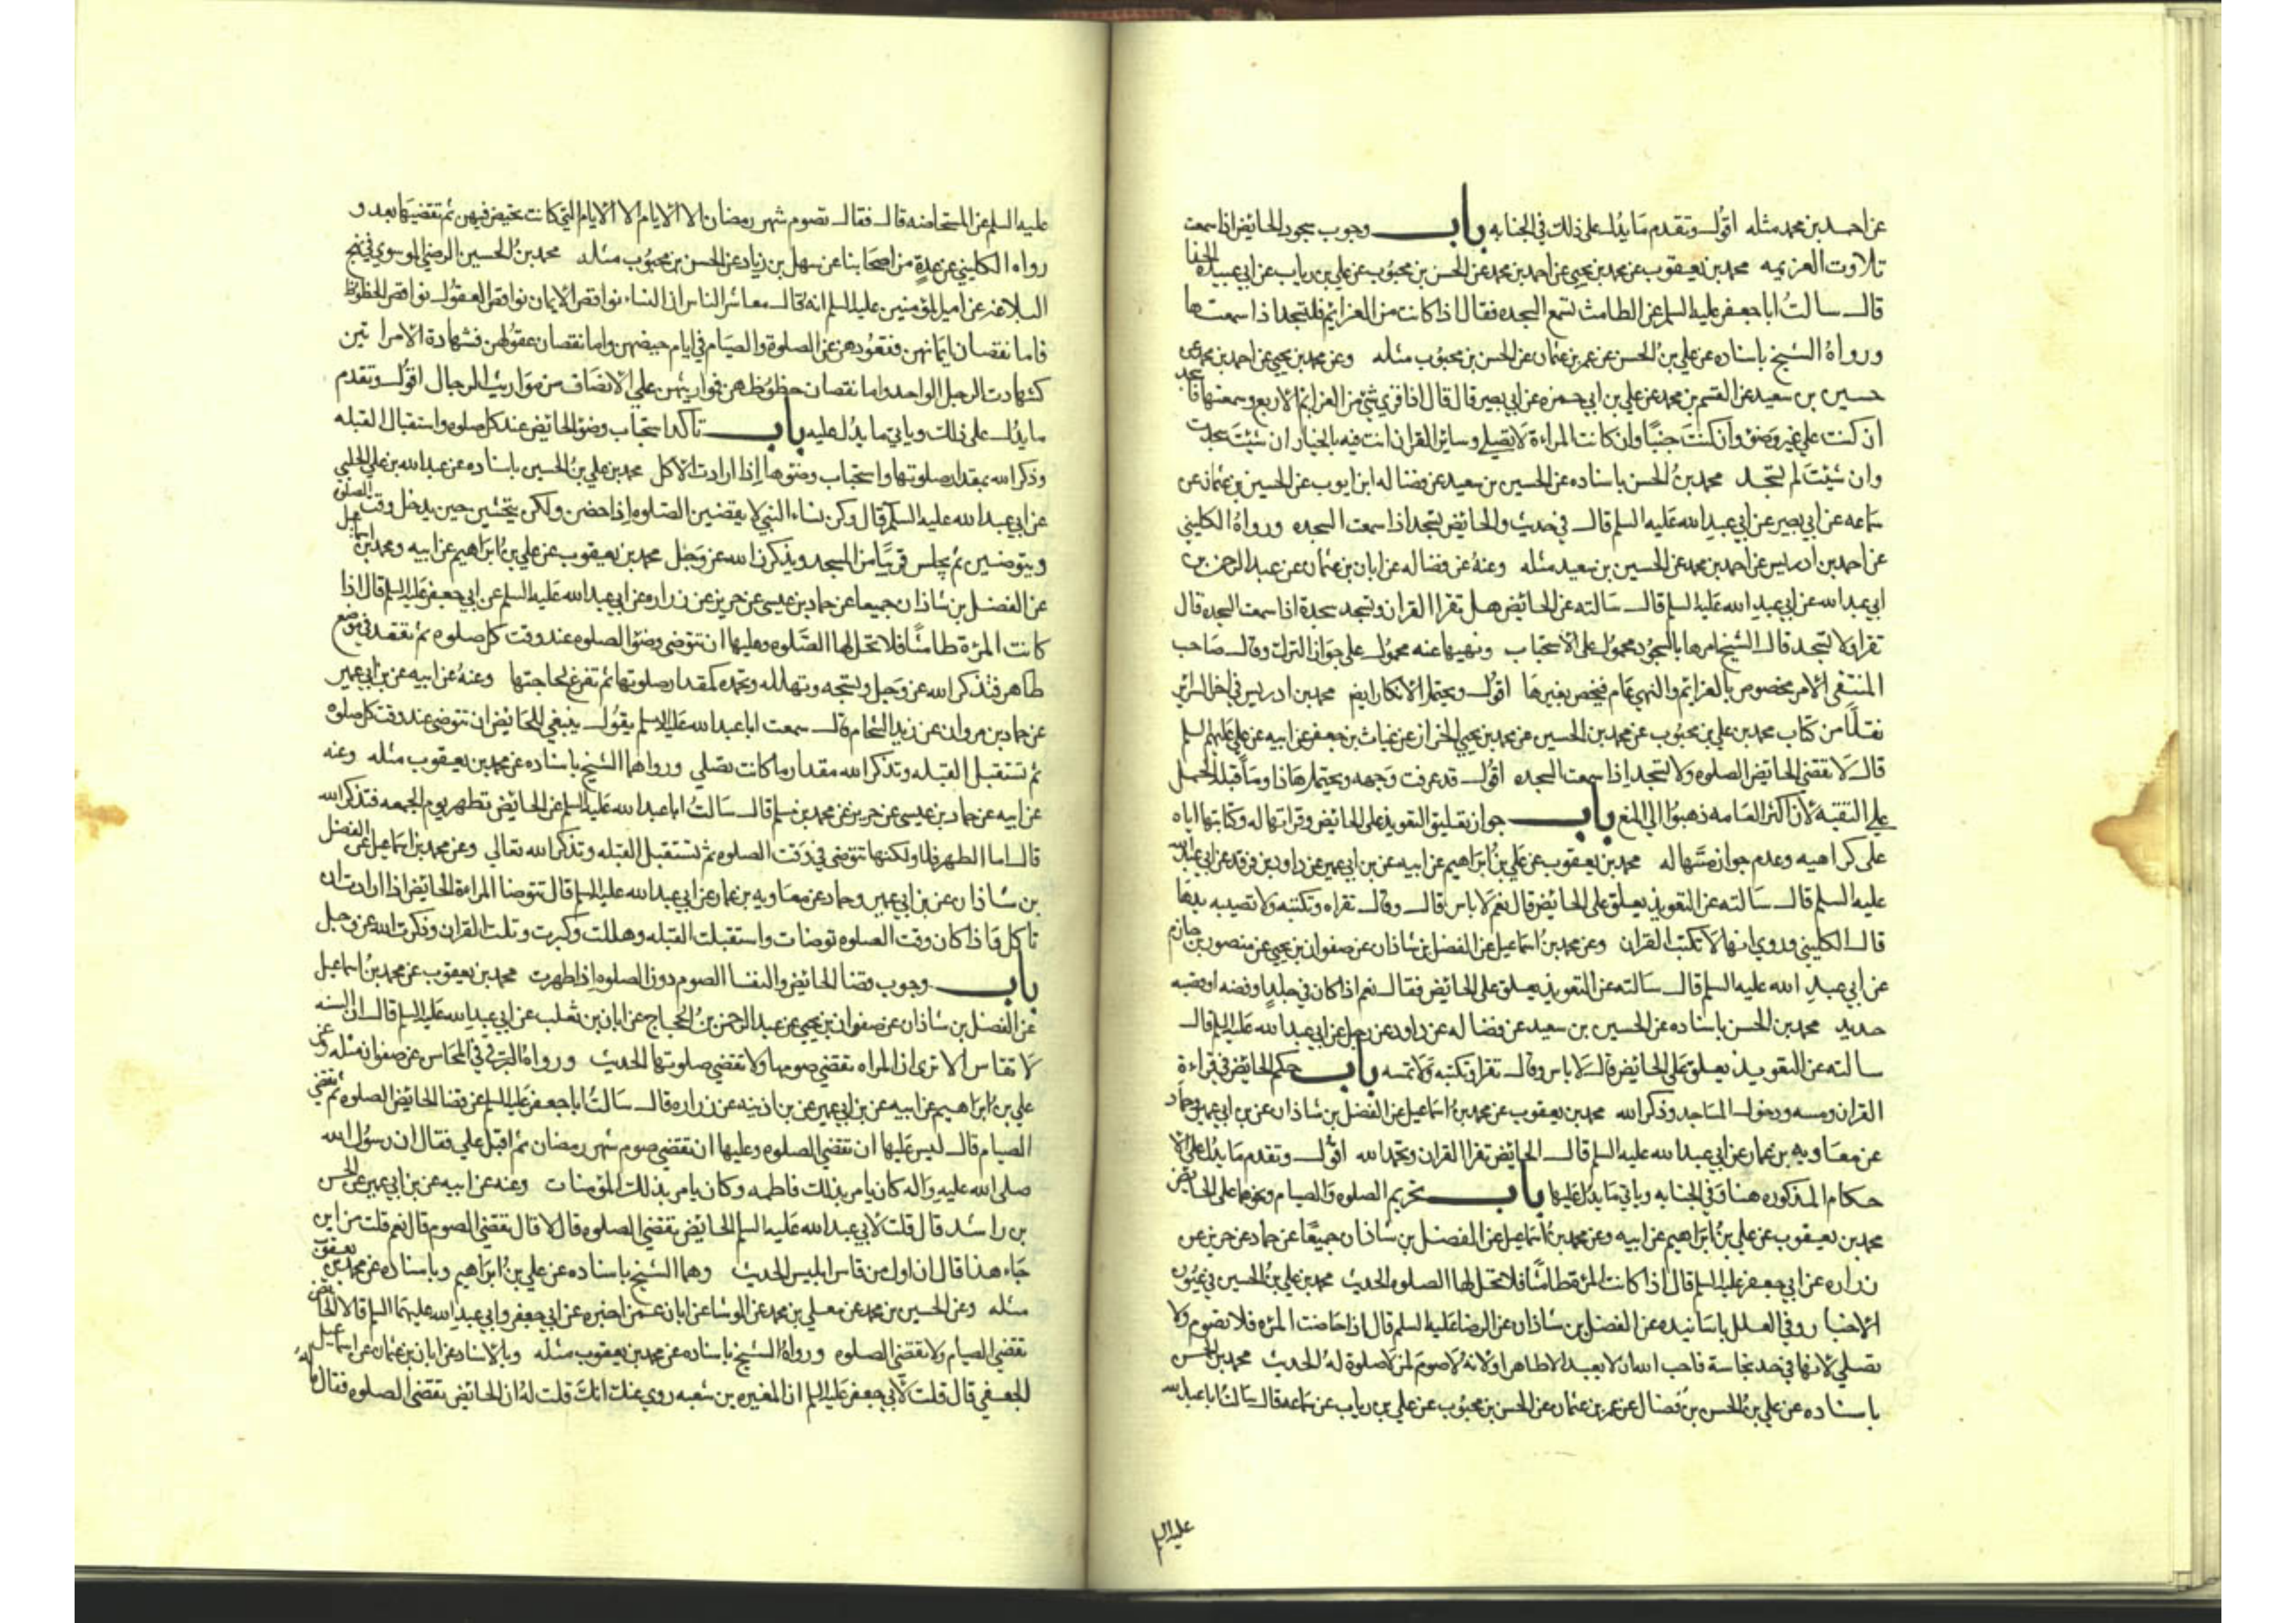 عن احمد بن محمد مثله اقول وتقدم ما يدل على ذلك في الجنابه باب وجوب سجود الحائض اذا سمعت
تلاوت العزيمه محمد بن يعقوب عن محمد بن يحيى عن احمد بن محمد عن الحسن بن محبوب عن علي بن رياب عن ابي عبيده الحذا
قال سالت ابا جعفر عليه السلم عن الطامث تسمع السجده فقال اذا كانت من العزائم فلتسجد اذا سمعتها
ورواه الشيخ باسناده عن علي بن الحسن عن عمر بن عثمان عن الحسن بن محبوب مثله وعن محمد بن يحيى عن احمد بن محمد عن
حسين بن سعيد عن القسم بن محمد عن علي بن ابي حمزه عن ابي بصير قال قال اذا قري شئ من العزائم الاربع وسمعتها فاسجد
ان كنت على غير وضؤ وان كنت جنبا وان كانت المراءة لا تصلي وسائر القران انت فيه بالخيار ان شئت سجدت
وان شئت لم تسجد محمد بن الحسن باسناده عن الحسين بن سعيد عن فضاله ابن ايوب عن الحسين بن عثمان عن
سماعه عن ابي بصير عن ابي عبد الله عليه السلم قال في حديث والحائض تسجد اذا سمعت السجده ورواه الكليني
عن احمد بن ادريس عن احمد بن محمد عن الحسين بن سعيد مثله وعنه عن فضاله عن ابان بن عثمان عن عبد الرحمن بن
ابي عبد الله عن ابي عبد الله عليه السلم قال سالته عن الحائض هل تقرا القران وتسجد سجدة اذا سمعت السجده قال
تقرا ولا تسجد قال الشيخ امرها بالسجود محمول على الاستحباب ونهيها عنه محمول على جواز الترك وقال صاحب
المنتقى الامر مخصوص بالعزائم والنهي عام فيخص بغيرها اقول ويحتمل الانكار ايض محمد بن ادريس في اخر السرائر
نقلا من كتاب محمد بن علي بن محبوب عن محمد بن الحسين عن محمد بن يحيى الخزاز عن غياث بن جعفر عن ابيه عن علي عليهم السلم
قال لا تقضي الحائض الصلوه ولا تسجد اذا سمعت السجده اقول قد عرفت وجهه ويحتمل هاذا وما قبله الحمل
على التقيه لان اكثر العامه ذهبوا الى المنع باب جواز تعليق التعويذ على الحائض وقراتها له وكتابتها اياه
على كراهيه وعدم جواز مسها له محمد بن يعقوب عن علي بن ابراهيم عن ابيه عن بن ابي عمير عن داود بن فرقد عن ابي عبد الله
عليه السلم قال سالته عن التعويذ يعلق على الحائض قال نعم لا باس قال وقال تقراه وتكتبه ولا تصيبه يدها
قال الكليني وروي انها لا تكتب القران وعن محمد بن اسماعيل عن الفضل بن شاذان عن صفوان بن يحيى عن منصور بن حازم
عن ابي عبد الله عليه السلم قال سالته عن التعويذ يعلق على الحائض فقال نعم اذا كان في جلد او فضه او قصبه
حديد محمد بن الحسن باسناده عن الحسين بن سعيد عن فضاله عن داود عن رجل عن ابي عبد الله عليه السلم قال
سالته عن التعويذ يعلق على الحائض قال لا باس وقال تقرا وتكتبه ولا تمسه باب حكم الحائض في قراءة
القران ومسه ودخول المساجد وذكر الله محمد بن يعقوب عن محمد بن اسماعيل عن الفضل بن شاذان عن بن ابي عمير وحماد
عن معاويه بن عمار عن ابي عبد الله عليه السلم قال الحائض تقرا القران وتحمد الله اقول وتقدم ما يدل على الا
حكام المذكوره هنا وفي الجنابه وياتي ما يدل عليها باب تحريم الصلوه والصيام ونحوهما على الحائض
محمد بن يعقوب عن علي بن ابراهيم عن ابيه وعن محمد بن اسماعيل عن الفضل بن شاذان جميعا عن حماد عن حريز عن
زراره عن ابي جعفر عليه السلم قال اذا كانت المرءة طامثا فلا تحل لها الصلوه الحديث محمد بن علي بن الحسين في عيون
الاخبار وفي العلل باسانيده عن الفضل بن شاذان عن الرضا عليه السلم قال اذا حاضت المرءه فلا تصوم ولا
تصلي لانها في حد نجاسة فاحب الله ان لا يعبد الا طاهرا ولانه لا صوم لمن لا صلوة له الحديث محمد بن الحسن
باسناده عن علي بن الحسن بن فضال عن عمر بن عثمان عن الحسن بن محبوب عن علي بن رياب عن سماعه قال سالت ابا عبد الله
عليه السلم
عليه السلم عن المستحاضه قال فقال تصوم شهر رمضان الا الايام الا الايام التي كانت تحيض فيهن ثم تقضيها بعد و
رواه الكليني عن عدة من اصحابنا عن سهل بن زياد عن الحسن بن محبوب مثله محمد بن الحسين الرضي الموسوي في نهج
البلاغه عن امير المؤمنين عليه السلم انه قال معاشر الناس ان النساء نواقص الايمان نواقص العقول نواقص الحظوظ
فاما نقصان ايمانهن فقعودهن عن الصلوة والصيام في ايام حيضهن واما نقصان عقولهن فشهادة الامراتين
كشهادت الرجل الواحد واما نقصان حظوظهن فمواريثهن على الانصاف من مواريث الرجال اقول وتقدم
ما يدل على ذلك وياتي ما يدل عليه باب تاكد استحباب وضؤ الحائض عند كل صلوه واستقبال القبله
وذكر الله بمقدار صلوتها واستحباب وضوها اذا ارادت الاكل محمد بن علي بن الحسين باسناده عن عبد الله بن علي الحلبي
عن ابي عبد الله عليه السلم قال وكن نساء النبي لا يقضين الصلوه اذا حضن ولكن يتحشين حين يدخل وقت الصلوه
ويتوضين ثم يجلس قريبا من المسجد ويذكرن الله عز وجل محمد بن يعقوب عن علي بن ابراهيم عن ابيه ومحمد بن اسماعيل
عن الفضل بن شاذان جميعا عن حماد بن عيسى عن حريز عن زراره عن ابي عبد الله عليه السلم عن ابي جعفر عليه السلم قال اذا
كانت المرءة طامثا فلا تحل لها الصلوه وعليها ان تتوضى وضؤ الصلوه عند وقت كل صلوه ثم تقعد في موضع
طاهر فتذكر الله عز وجل وتسبحه وتهلله وتحمده كمقدار صلوتها ثم تفرغ لحاجتها وعنه عن ابيه عن بن ابي عمير
عن حماد بن مروان عن زيد الشحام قال سمعت ابا عبد الله عليه السلم يقول ينبغي للحائض ان تتوضى عند وقت كل صلوه
ثم تستقبل القبله وتذكر الله مقدار ما كانت تصلي ورواهما الشيخ باسناده عن محمد بن يعقوب مثله وعنه
عن ابيه عن حماد بن عيسى عن حريز عن محمد بن مسلم قال سالت ابا عبد الله عليه السلم عن الحائض تطهر يوم الجمعه فتذكر الله
قال اما الطهر فلا ولكنها تتوضى في وقت الصلوه ثم تستقبل القبله وتذكر الله تعالى وعن محمد بن اسماعيل عن الفضل
بن شاذان عن بن ابي عمير وحماد عن معاويه بن عمار عن ابي عبد الله عليه السلم قال تتوضا المراءة الحائض اذا ارادت ان
تاكل فاذا كان وقت الصلوه توضات واستقبلت القبله وهللت وكبرت وتلت القران وذكرت الله عز وجل
باب وجوب قضا الحائض والنفسا الصوم دون الصلوه اذا طهرت محمد بن يعقوب عن محمد بن اسماعيل
عن الفضل بن شاذان عن صفوان بن يحيى عن عبد الرحمن بن الحجاج عن ابان بن تغلب عن ابي عبد الله عليه السلم قال ان السنه
لا تقاس الا ترى ان المراه تقضي صومها ولا تقضي صلوتها الحديث ورواه البرقي في المحاسن عن صفوان مثله وعن
علي بن ابراهيم عن ابيه عن بن ابي عمير عن بن اذينه عن زراره قال سالت ابا جعفر عليه السلم عن قضا الحائض الصلوه ثم تقضي
الصيام قال ليس عليها ان تقضي الصلوه وعليها ان تقضي صوم شهر رمضان ثم اقبل علي فقال ان رسول الله
صلى الله عليه واله كان يامر بذلك فاطمه وكان يامر بذلك المؤمنات وعنه عن ابيه عن بن ابي عمير عن الحسن
بن راشد قال قلت لابي عبد الله عليه السلم الحائض تقضي الصلوه قال لا قال تقضي الصوم قال نعم قلت من اين
جاء هذا قال ان اول من قاس ابليس الحديث وهما الشيخ باسناده عن علي بن ابراهيم وباسناده عن محمد بن يعقوب
مثله وعن الحسين بن محمد عن معلى بن محمد عن الوشا عن ابان عمن اخبره عن ابي جعفر وابي عبد الله عليهما السلم قالا الحائض
تقضي الصيام ولا تقضي الصلوه ورواه الشيخ باسناده عن محمد بن يعقوب مثله وبالاسناد عن ابان بن عثمان عن اسماعيل
الجعفي قال قلت لابي جعفر عليه السلم ان المغيره بن شعبه روى عنك انك قلت له ان الحائض تقضي الصلوه فقال